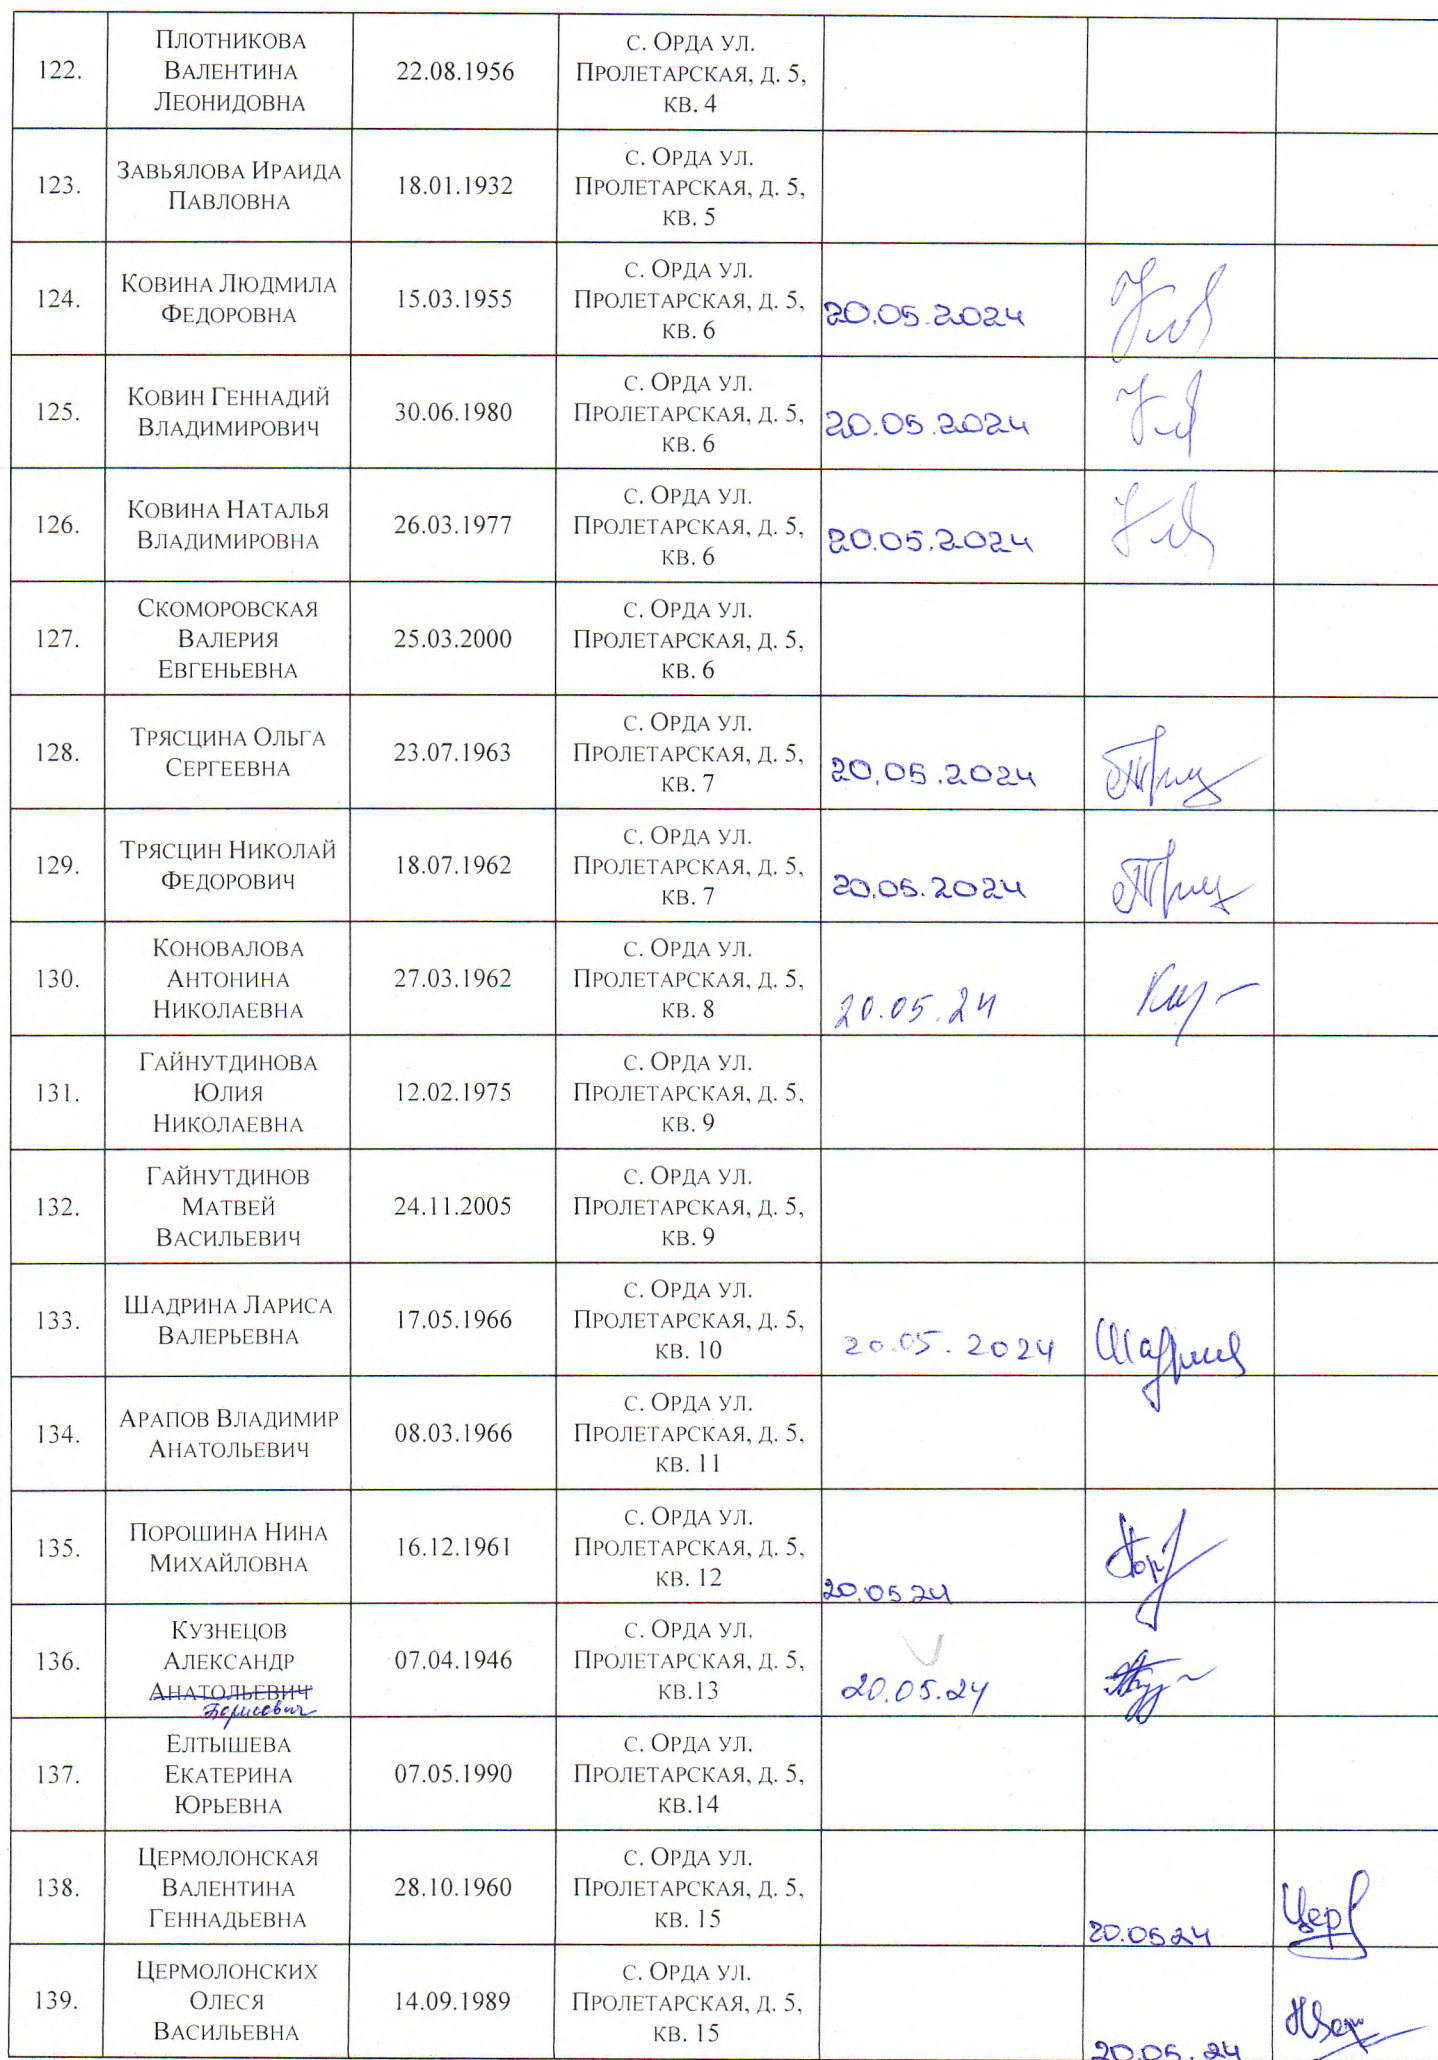 122.
Плотникова
Валентина
Леонидовна
22.08.1956
с. Орда ул.
Пролетарская, д. 5,
кв. 4
123.
Завьялова Ираида
Павловна
18.01.1932
с. Орда ул.
Пролетарская, д. 5,
кв. 5
124.
Ковина Людмила
Федоровна
15.03.1955
с. Орда ул.
Пролетарская, д. 5,
кв. 6
20.05.2024
125.
Ковин Геннадий
Владимирович
30.06.1980
с. Орда ул.
Пролетарская, д. 5,
кв. 6
20.05.2024
126.
Ковина Наталья
Владимировна
26.03.1977
с. Орда ул.
Пролетарская, д. 5,
кв. 6
20.05.2024
127.
Скоморовская
Валерия
Евгеньевна
25.03.2000
с. Орда ул.
Пролетарская, д. 5,
кв. 6
128.
Трясцина Ольга
Сергеевна
23.07.1963
с. Орда ул.
Пролетарская, д. 5,
кв. 7
20.05.2024
129.
Трясцин Николай
Федорович
18.07.1962
с. Орда ул.
Пролетарская, д. 5,
кв. 7
20.05.2024
130.
Коновалова
Антонина
Николаевна
27.03.1962
с. Орда ул.
Пролетарская, д. 5,
кв. 8
20.05.24
131.
Гайнутдинова
Юлия
Николаевна
12.02.1975
с. Орда ул.
Пролетарская, д. 5,
кв. 9
132.
Гайнутдинов
Матвей
Васильевич
24.11.2005
с. Орда ул.
Пролетарская, д. 5,
кв. 9
133.
Шадрина Лариса
Валерьевна
17.05.1966
с. Орда ул.
Пролетарская, д. 5,
кв. 10
20.05.2024
134.
Арапов Владимир
Анатольевич
08.03.1966
с. Орда ул.
Пролетарская, д. 5,
кв. 11
135.
Порошина Нина
Михайловна
16.12.1961
с. Орда ул.
Пролетарская, д. 5,
кв. 12
20.05.24
136.
Кузнецов
Александр
Анатольевич
Борисович
07.04.1946
с. Орда ул.
Пролетарская, д. 5,
кв.13
20.05.24
137.
Елтышева
Екатерина
Юрьевна
07.05.1990
с. Орда ул.
Пролетарская, д. 5,
кв.14
138.
Цермолонская
Валентина
Геннадьевна
28.10.1960
с. Орда ул.
Пролетарская, д. 5,
кв. 15
20.05.24
Цер
139.
Цермолонских
Олеся
Васильевна
14.09.1989
с. Орда ул.
Пролетарская, д. 5,
кв. 15
20.05.24